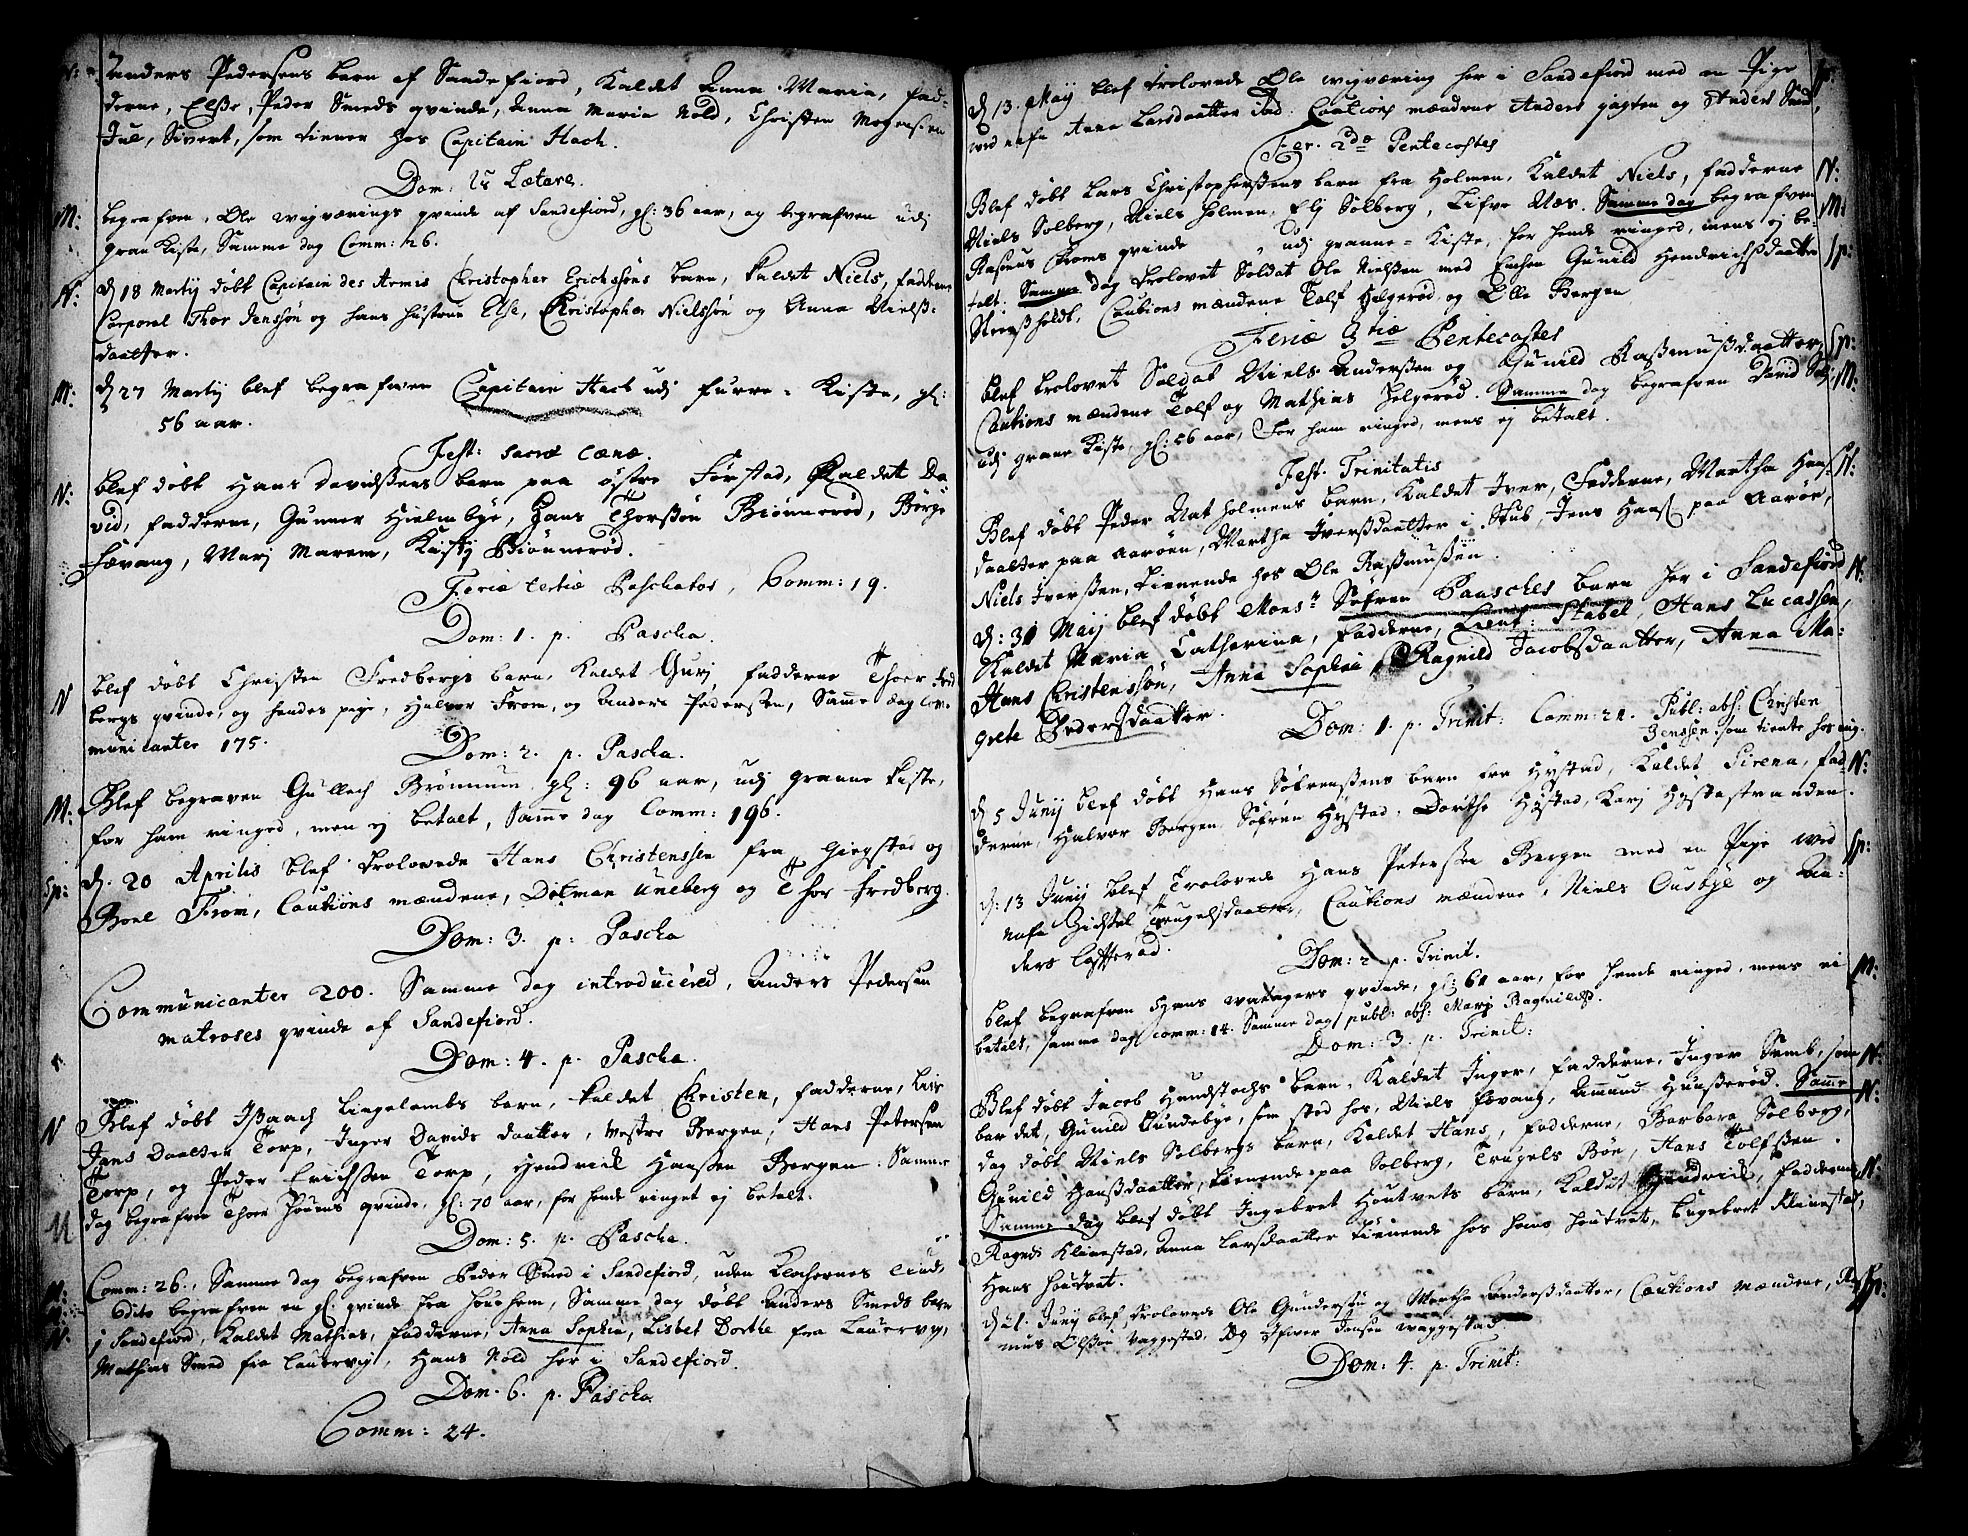 Anders Pedersens barn af Sandefiord, Kaldet Anna Maria, fad-
derne, Elsse, Peder Smeds qvinde, Anna Maria Nold, Christen Mogensen
Juel, Sivert, som tienner hos Capitain Hach.
Dom: Lætare.
M: begrafven, Ole wigværings qvinde af Sandefiord, gl: 36 aar, og begrafven udj
gran Kiste, Samme dag Comm: 26.
N: d 18 Martij døbt Capitain des Armis Christopher Erichssøns barn, kaldet Niels, fadderne
Corporal Thor Jenssøn og hans hustrue Else, Christopher Nielssøn og Anna Nielss-
daatter.
M: d 27 Martij blef begrafven Capitain Hach udj furre-Kiste, gl:
56 aar.
Fest: sacræ cænæ.
N: blef døbt Hans Davidssens barn paa østreFørstad, Kaldet Da
vid, fadderne, Gunner Hielmbye, Hans Thorssøn Biønnerød, Børge
Fevang, Marj Marem, Kirstj Biønnerød.
Feriæ tertiæ Paschatos, Comm: 19.
Dom: 1. p. Pascha.
N blef døbt Christen Fredbergs barn, Kaldet Gurj, fadderne Thoer Fred
bergs qvinde, og hendes pige, Halvor From, og Anders Pedersen, Samme dag Com-
municanter 175.
Dom: 2. p. Pascha.
M: Blef begraven Gullech Brønnum gl: 96 aar, udj granne kiste,
for ham ringed, men ej betalt, Samme dag Comm: 196.
Sp: d. 20 Aprilis blef trolovede Hans Christenssen fra Giegstad og
Boel From, Cautions mændene, Ditman Uneberg og Thor Fredberg.
Dom: 3. p: Pascha
Communicanter 200. Samme dag introducered, Anders Pedersen
matroses qvinde af Sandefiord.
Dom: 4. p. Pascha.
N Blef døbt Issaach Lingelembs barn, kaldet Christen, fadderne,
Jans Daatter Torp, Inger Davids daatter, Westre Bergen, Hans Petersen
Torp, og Peder Erichssen Torp, Hendrich Hanssen Bergen. Samme
dag begrafven Thor qvinde, gl: 70 aar, for hende ringet ej betalt.
Dom: 5. p. Pascha.
M: Comm: 26. Samme dag begrafven Peder Smed i Sandefiord, uden Klochernes
M: Edito begrafven en gl: qvinde fra Samme dag døbt Anders Smeds barn
N: j Sandefiord, Kaldet Mathias, fadderne, Anna Sophia, Lisbet Dorthe fra Lauervig,
Mathias Smed fra Lauervig, Hans Nold her i Sandefiord.
Dom. 6. p. Pascha
Comm: 24.
d 13. Maij blef trolovede Ole wigværing her i Sandefiord med en Pige Sp:
ved nafn Anna Larsdaatter ibid. Cautions mændene Anders jagten og Anders Smed,
Fer. 2dæ Pentecostes
Blef døbt Lars Christopherssens barn fra Holmen, Kaldet Niels, fadderne N:
Niels Solberg, Niels Holmen, Elj Solberg, Lisve Næs. Samme dag begrafven M:
Rasmus Froms qvinde udj granne-Kiste, for hende ringed, mens ej be-
talt. Samme dag trolovet Soldat Ole Nielssen med Enchen Gunild Hendrichsdaatter Sp:
Cautions mændene Tolf Helgerød og Olle Bergen
Feriæ 3tiæ Pentecostes
blef trolovet Soldat Niels Anderssen og Gunild Rassmussdaatter, Sp:
Cautions mændene Tolf og Mathias Helgerød. Samme dag begrafven David M:
udj grane Kiste, gl: 56 aar, for ham ringed, mens ej betalt.
Fest. Trinitatis
Blef døbt Peder holmens barn, Kaldet Iver, Fadderne, Martha Hans N:
daatter paa Aarøen, Martha Iverssdaatter i Stub, Jens Hans paa Aarøe,
Niels Iverssen, tienende hos Ole Rassmussøn.
d: 31 Maij blef døbt Monsr Søfren Paasches barn her i Sandefiord N:
Kaldet Maria Catharina, fadderne, Lieut: Stabel, Hans Lucassen,
Hans Christenssøn, Anna Sophia, Ragnild Jacobsdaatter, Anna Ma-
grete Pedersdaatter.
Dom: 1. p. Trinit: Comm: 21. Publ: abs: Christen
Jenssen, som tiente hos mig.
d 5 Junij blef døbt Hans Søfrenssens barn fra Hystad, Kaldet Sirena, fad- N:
derne, Halvor Bergen, Søfren Hystad, Dorthe Hystad, Karj Hystastranden.
d: 13 Junij blef Trolovede Hans Peterssen Bergen med en Pige ved Sp:
nafn Trugelsdaatter, Cautions mændene, Niels Ousbye og An-
ders
Dom: 2 p. Trinit.
blef begrafven Hans qvinde, gl: 61 aar, for hende ringed, mens ei M:
betalt, samme dag comm: 14. Samme dag publ: abs: Marj Ragnilds.
Dom: 3. p. Trinit:
Blef døbt Jacob Handstochs barn, Kaldet Inger, fadderne, Inger Semb, som N:
bar det, Gunild Sundebye, som stod hos, Niels Fevang, Amund Hunsserød. Samme N:
dag døbt Niels Solbergs barn, Kaldet Hans, fadderne, Barbara Solberg,
Gunild Hanssdaatter, tienende paa Solberg, Trugels Bøe, Hans Tolfssen.
Samme dag blef døbt Ingebret Houtvets barn, Kaldet Hendrich, fadderne N:
Ragndi Klinestad, Anna Larsdaatter tienende hos hans Houtvet, Engebret Klinestad,
Hans Houtvet.
d 21. Junij blef trolovede Ole Gunderssøn og Martha Anderssdaatter, Cautions mændene, Ras Sp:
mus Olssøn Vaggestad, og Ifwer Jensen waggestad.
Dom: 4. p. Trinit: